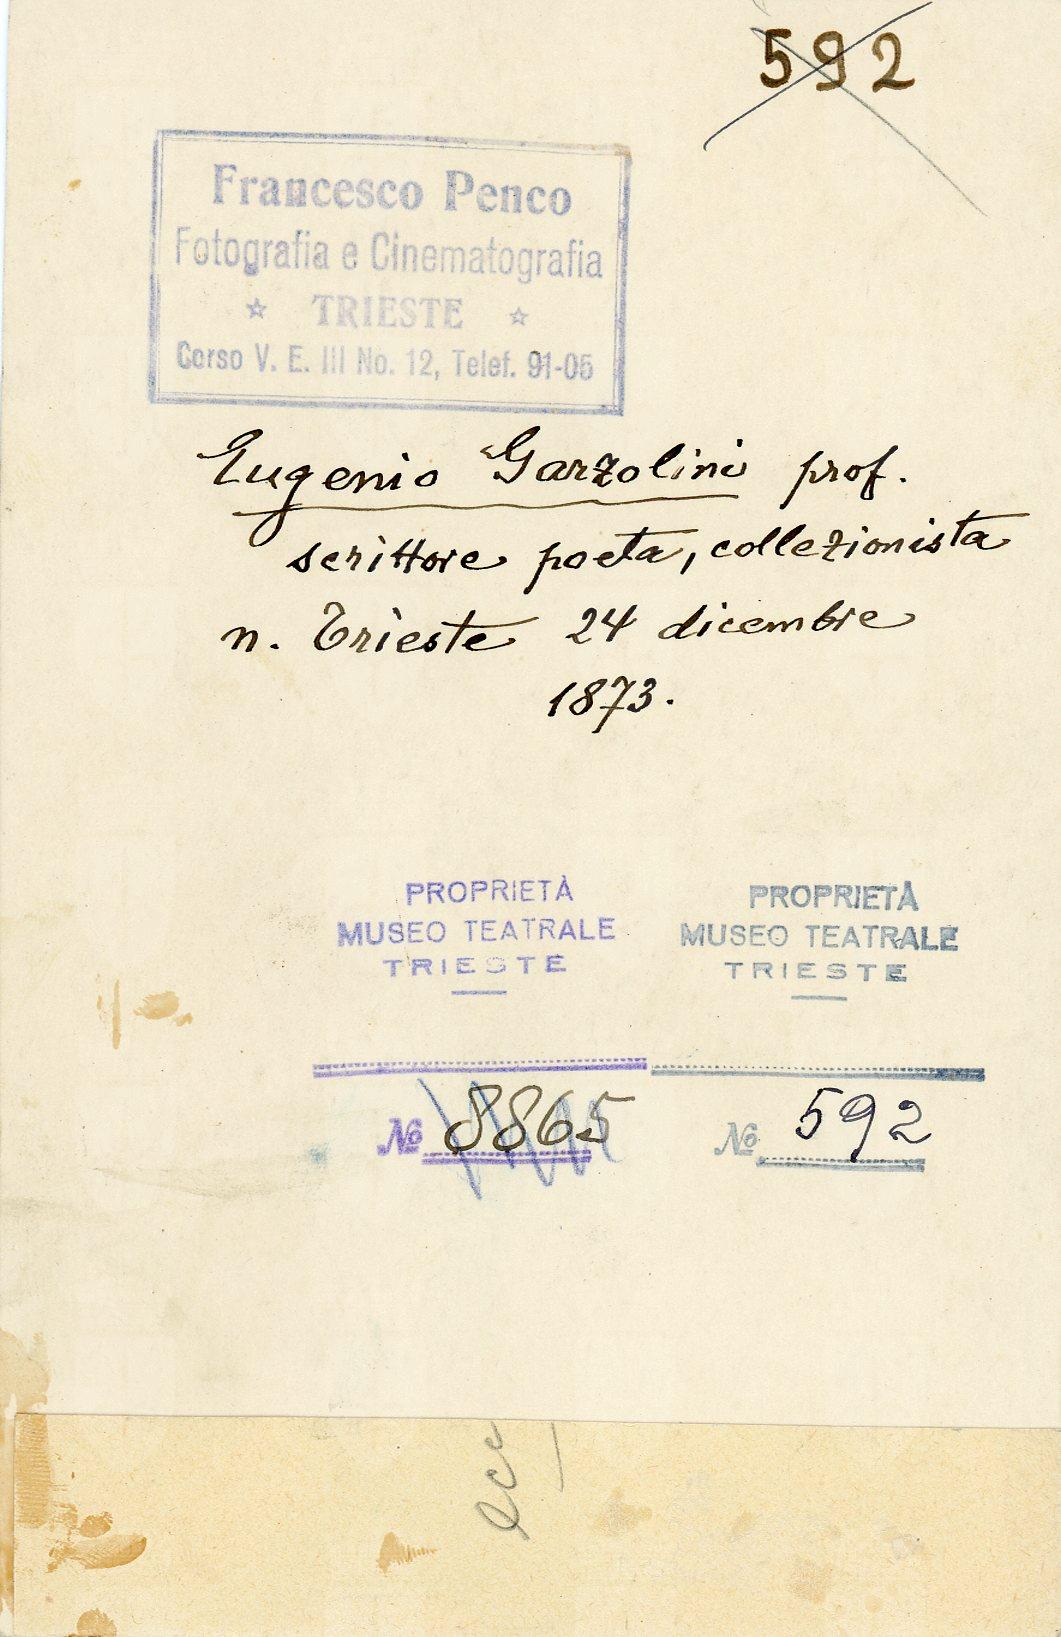 592
Francesco Penco
Fotografia e Cinematografia
☆ TRIESTE ☆
Corso V. E. III No. 12, Telef. 91-05
Eugenio Garzolini prof.
scrittore poeta, collezionista
n. Trieste 24 dicembre
1873.
PROPRIETÀ
MUSEO TEATRALE
TRIESTE
№ 8865
PROPRIETÀ
MUSEO TEATRALE
TRIESTE
№ 592